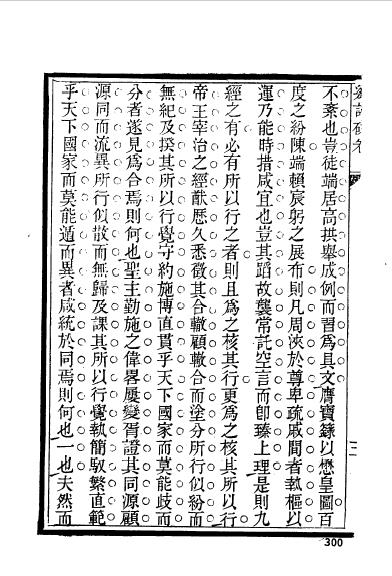 不紊也豈徒端居高拱舉成例而習為具文膺寶籙以懋皇圖百
度之紛陳端賴宸躬之展布則凡周浹於尊卑疏戚間者執樞以
運乃能時措咸宜也豈其蹈故襲常託空言而卽臻上理是則九
經之有必有所以行之者則且為之核其行更為之核其所以行
帝王宰治之經猷歷久悉徵其合轍顧轍合而塗分所行似紛而
無紀及揆其所以行覺守約施博直貫乎天下國家而莫能歧而
分者遂見為合焉則何也聖主勤施之偉畧屢變胥證其同源顧
源同而流異所行似散而無歸及課其所以行覺執簡馭繁直範
乎天下國家而莫能遁而異者咸統於同焉則何也一也夫然而
三
300